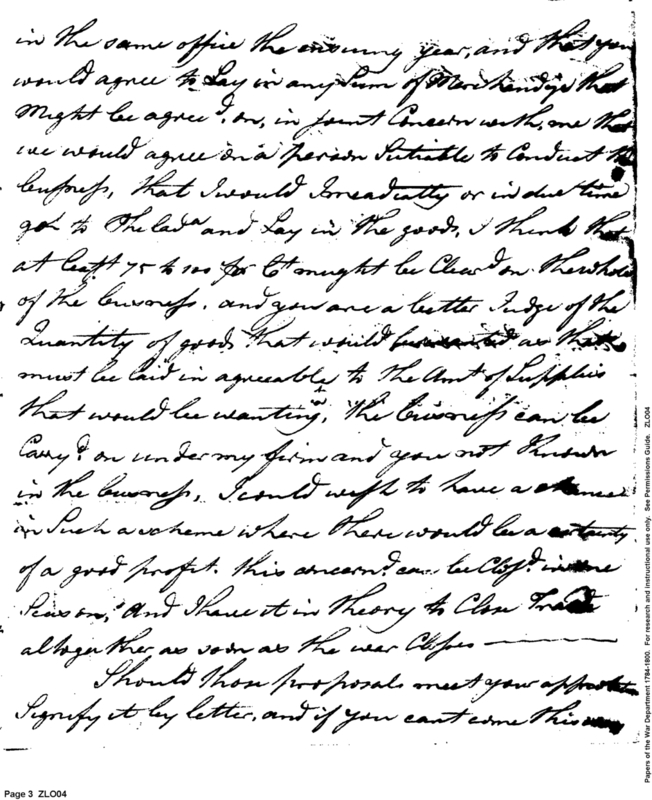 in the same office the ensuing year, and that you
would agree to Lay in any Sum of Merchendize that
Might be agree'd. on, in joint Concern with, me that
we would agree on a person Sutiable to Conduct the
business, that I would Imeadiatly or in due time
go to Philada and Lay in the goods, I think that
at least 75 to 100 pr Ct might be Clear'd on the whole
of the business. and you are a better Judge of the
Quantity of goods that would be wanted as that
must be laid in agreeable to the Amt of Supplies
that would be wanting, the business can be
Carry'd on under my firm and you not Known
in the business, I could wish to have a chance
in Such a scheme where there would be a certainty
of a good profit. this concern'd can be Clos'd in one
Season, And I have it in theory to Close Trade
altogether as soon as the war Closes
Should those proposals meet your approbation
Signify it by letter, and if you cant come this way
Page 3 ZLO04
Papers of the War Department 1784-1800. For research and instructional use only. See Permissions Guide. ZLO04